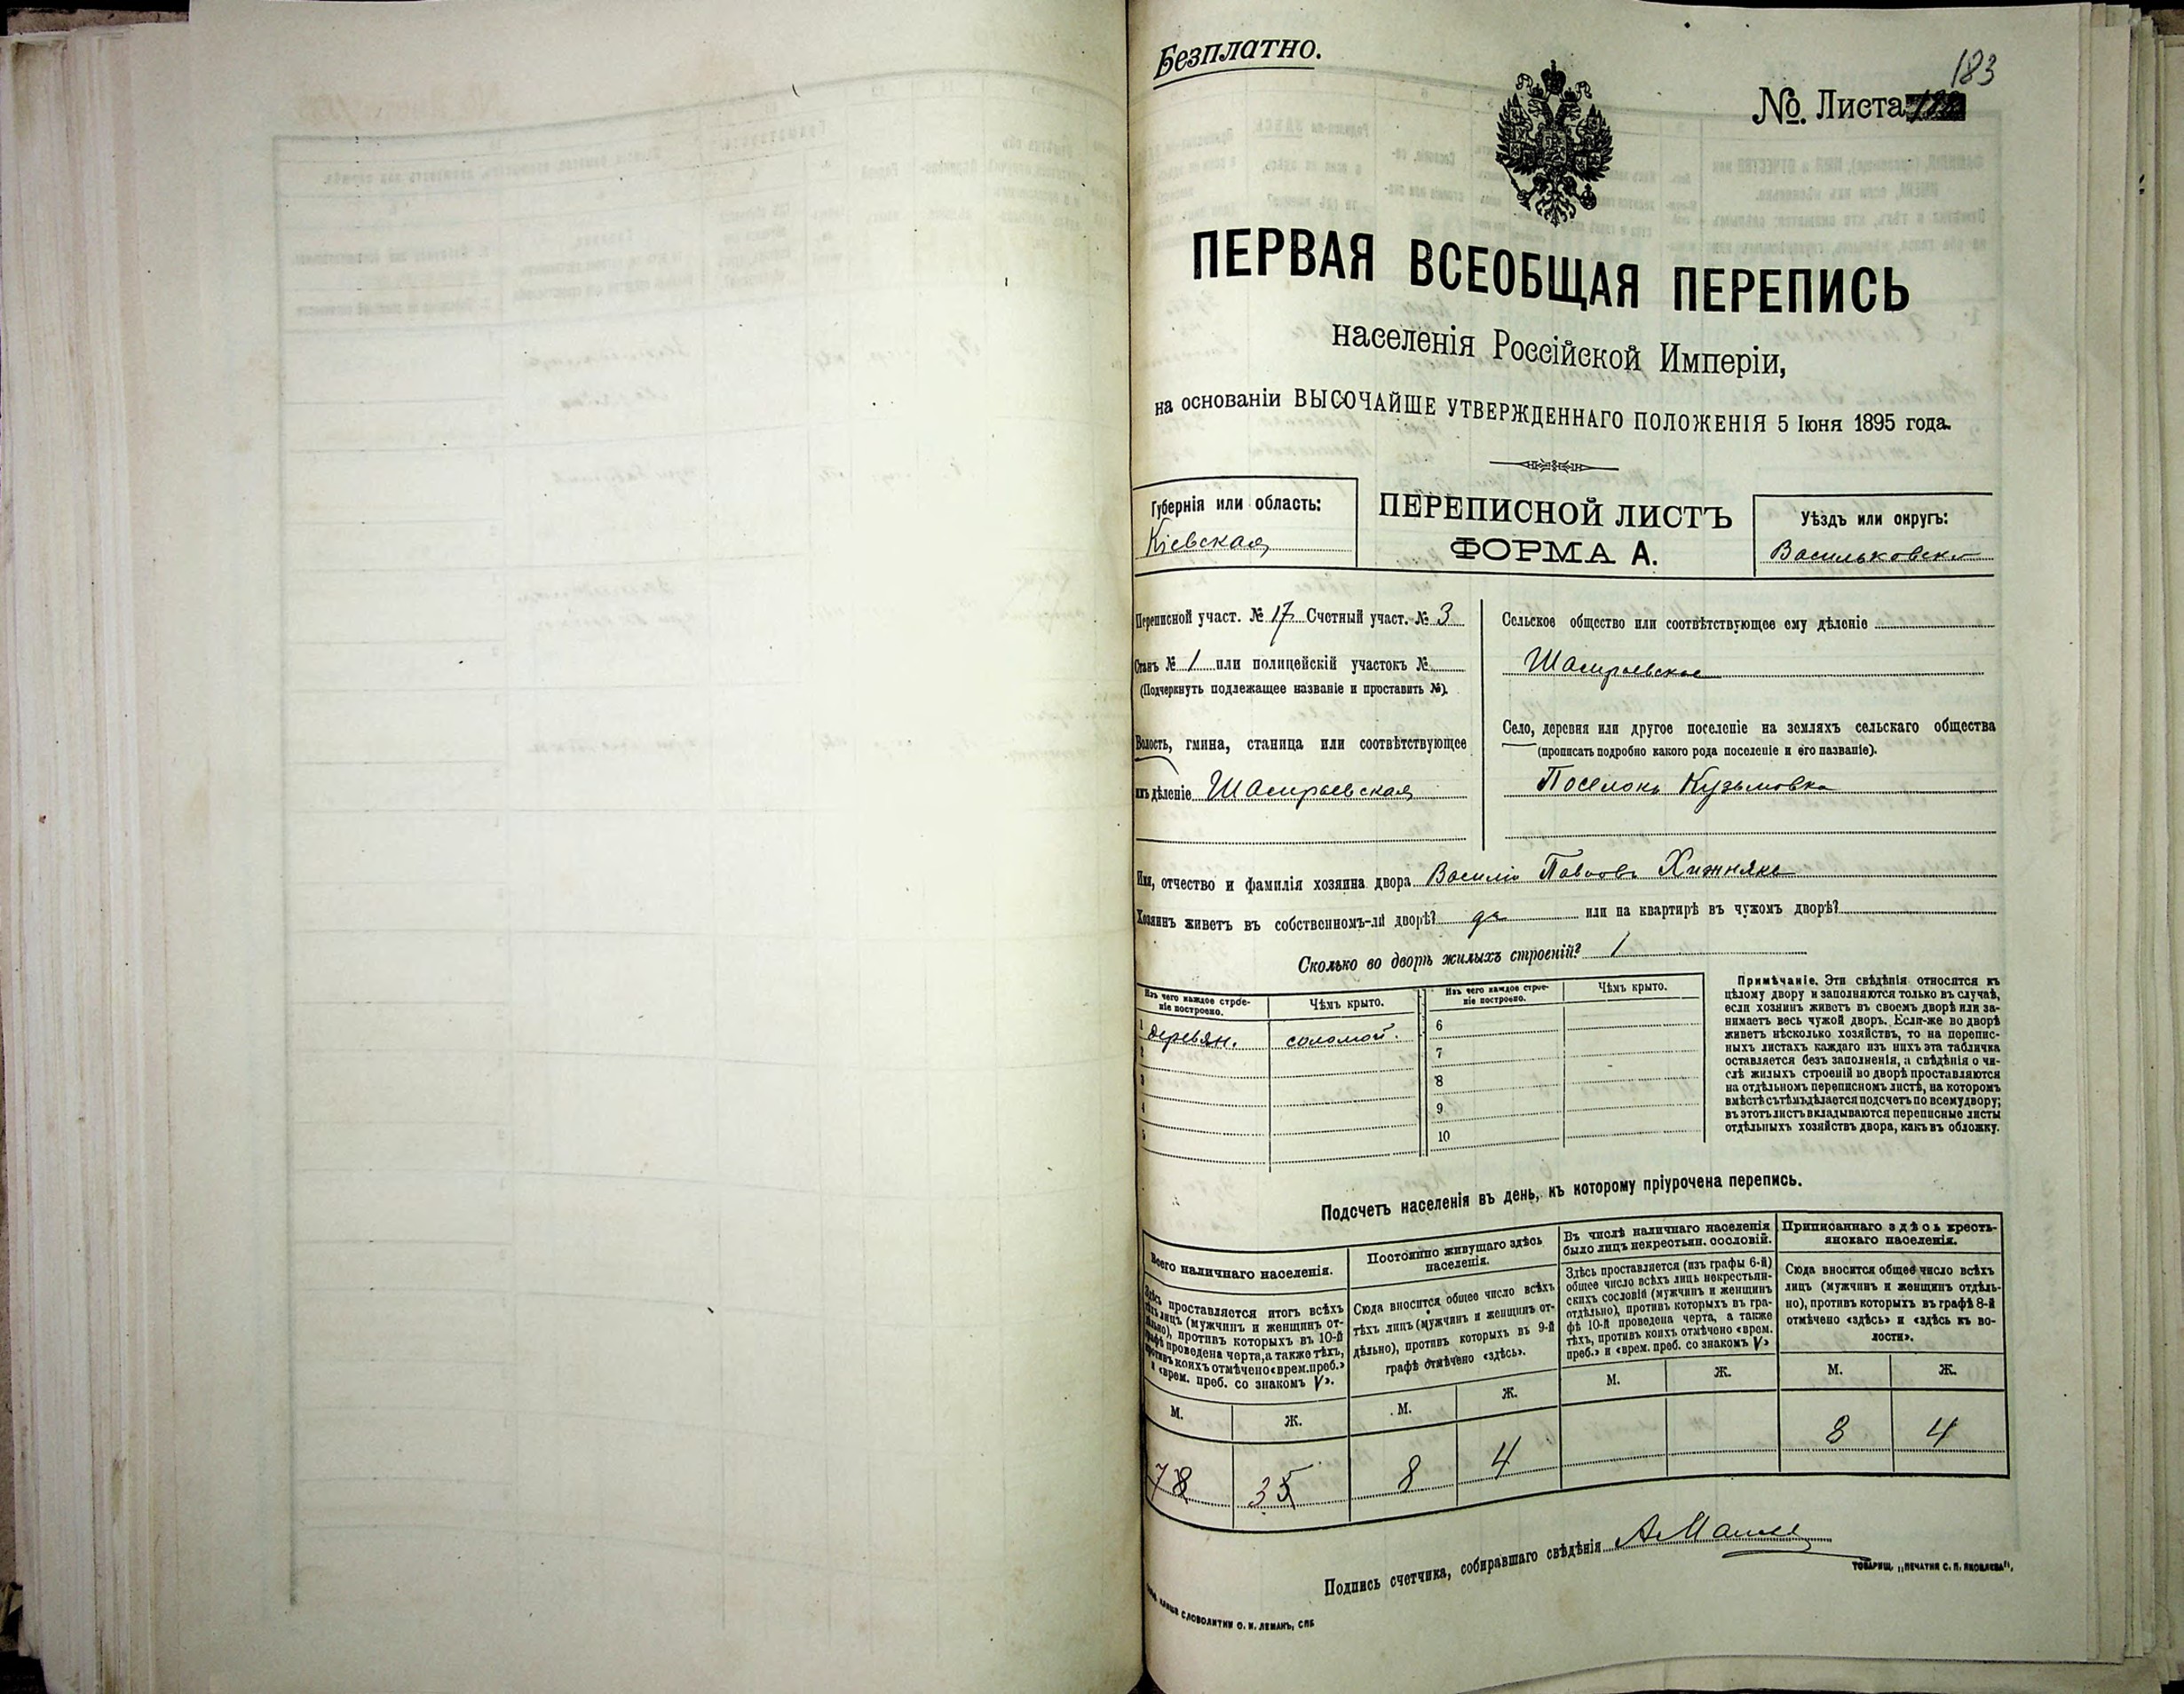 Безплатно.
183
№. Листа
ПЕРВАЯ ВСЕОБЩАЯ ПЕРЕПИСЬ
населенія Россійской Имперіи,
на основаніи ВЫСОЧАЙШЕ УТВЕРЖДЕННАГО ПОЛОЖЕНІЯ 5 Іюня 1895 года.
Губернія или область:
Кіевская
ПЕРЕПИСНОЙ ЛИСТЪ
ФОРМА А.
Уѣздъ или округъ:
Васильковск
Переписной участ. № 17 Счетный участ. № 3
Станъ № 1 или полицейскій участокъ №
(Подчеркнуть подлежащее названіе и проставить №).
Волость, гмина, станица или соотвѣтствующее
имъ дѣленіе Шамраевская
Сельское общество или соотвѣтствующее ему дѣленіе
Шамраевское
Село, деревня или другое поселеніе на земляхъ сельскаго общества
(прописать подробно какого рода поселеніе и его названіе).
Поселокъ Кузьмовка
Имя, отчество и фамилія хозяина двора Василій Павловъ Хижнякъ
Хозяинъ живетъ въ собственномъ-ли дворѣ? да или на квартирѣ въ чужомъ дворѣ?
Сколько во дворѣ жилыхъ строеній? 1
Изъ чего каждое строе-
ніе построено.
Чѣмъ крыто.
1 деревян. соломой.
2
3
4
5
Изъ чего каждое строе-
ніе построено.
Чѣмъ крыто.
6
7
8
9
10
Примѣчаніе. Эти свѣдѣнія относятся къ
цѣлому двору и заполняются только въ случаѣ,
если хозяинъ живетъ въ своемъ дворѣ или за-
нимаетъ весь чужой дворъ. Если-же во дворѣ
живетъ нѣсколько хозяйствъ, то на перепис-
ныхъ листахъ каждаго изъ нихъ эта табличка
оставляется безъ заполненія, а свѣдѣнія о чи-
слѣ жилыхъ строеній во дворѣ проставляются
на отдѣльномъ переписномъ листѣ, на которомъ
вмѣстѣ съ тѣмъ дѣлается подсчетъ по всему двору;
въ этотъ листъ вкладываются переписные листы
отдѣльныхъ хозяйствъ двора, какъ въ обложку.
Подсчетъ населенія въ день, къ которому пріурочена перепись.
Всего наличнаго населенія.
Здѣсь проставляется итогъ всѣхъ
тѣхъ лицъ (мужчинъ и женщинъ от-
дѣльно), противъ которыхъ въ 10-й
графѣ проведена черта, а также тѣхъ,
противъ коихъ отмѣчено «врем. преб.»
и «врем. преб. со знакомъ V».
М. Ж.
7 8 3 5
Постоянно живущаго здѣсь
населенія.
Сюда вносится общее число всѣхъ
тѣхъ лицъ (мужчинъ и женщинъ от-
дѣльно), противъ которыхъ въ 9-й
графѣ отмѣчено «здѣсь».
М. Ж.
8 4
Въ числѣ наличнаго населенія
было лицъ некрестьян. сословій.
Здѣсь проставляется (изъ графы 6-й)
общее число всѣхъ лицъ некрестьян-
скихъ сословій (мужчинъ и женщинъ
отдѣльно), противъ которыхъ въ гра-
фѣ 10-й проведена черта, а также
тѣхъ, противъ коихъ отмѣчено «врем.
преб.» и «врем. преб. со знакомъ V»
М. Ж.
Приписаннаго здѣсь кресть-
янскаго населенія.
Сюда вносится общее число всѣхъ
лицъ (мужчинъ и женщинъ отдѣль-
но), противъ которыхъ въ графѣ 8-й
отмѣчено «здѣсь» и «здѣсь къ во-
лости».
М. Ж.
8 4
Подпись счетчика, собиравшаго свѣдѣнія
СЛОВОЛИТНИ О. И. ЛЕМАНЪ, СПБ
ТОВАРИЩ. „ПЕЧАТНЯ С. П. ЯКОВЛЕВА",